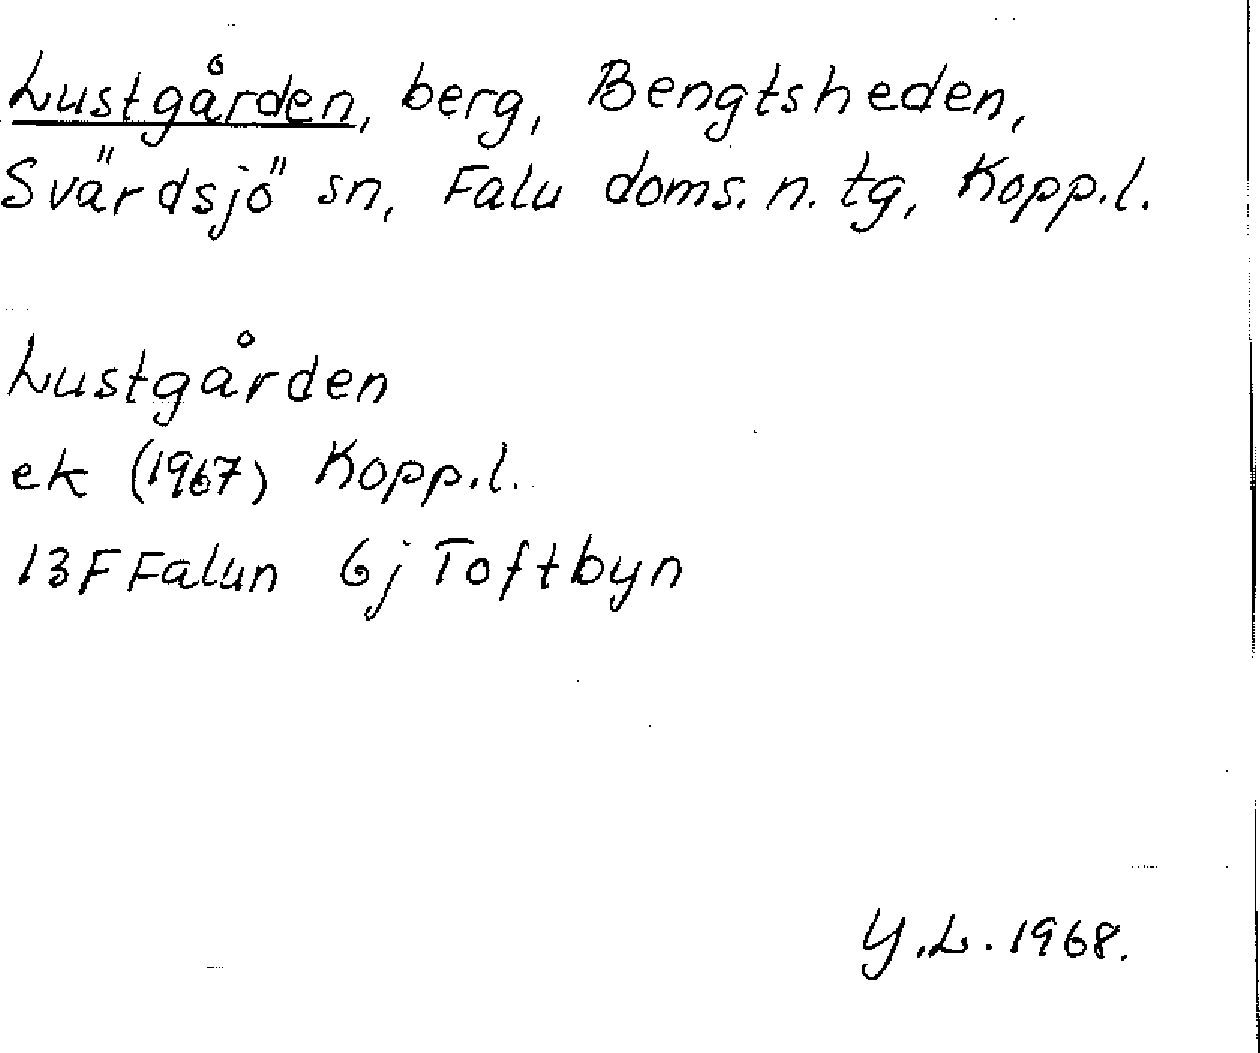 Lustgården, berg, Bengtsheden,
Svärdsjö sn, Falu doms. n. tg, Kopp.l.
Lustgården
ek (1967) Kopp.l.
13F Falun 6j Toftbyn
Y.L. 1968.